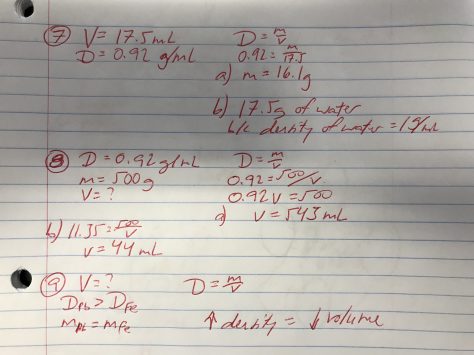 7 V = 17.5 mL
D = 0.92 g/mL
D = m/V
0.92 = m/17.5
a) m = 16.1g
b) 17.5g of water
b/c density of water = 1g/mL
8 D = 0.92 g/mL
m = 500g
V = ?
D = m/V
0.92 = 500/V
0.92V = 500
a) V = 543 mL
b) 11.35 = 500/V
V = 44 mL
9 V = ?
DPb > DFe
mPb = mFe
D = m/V
↑ density = ↓ volume